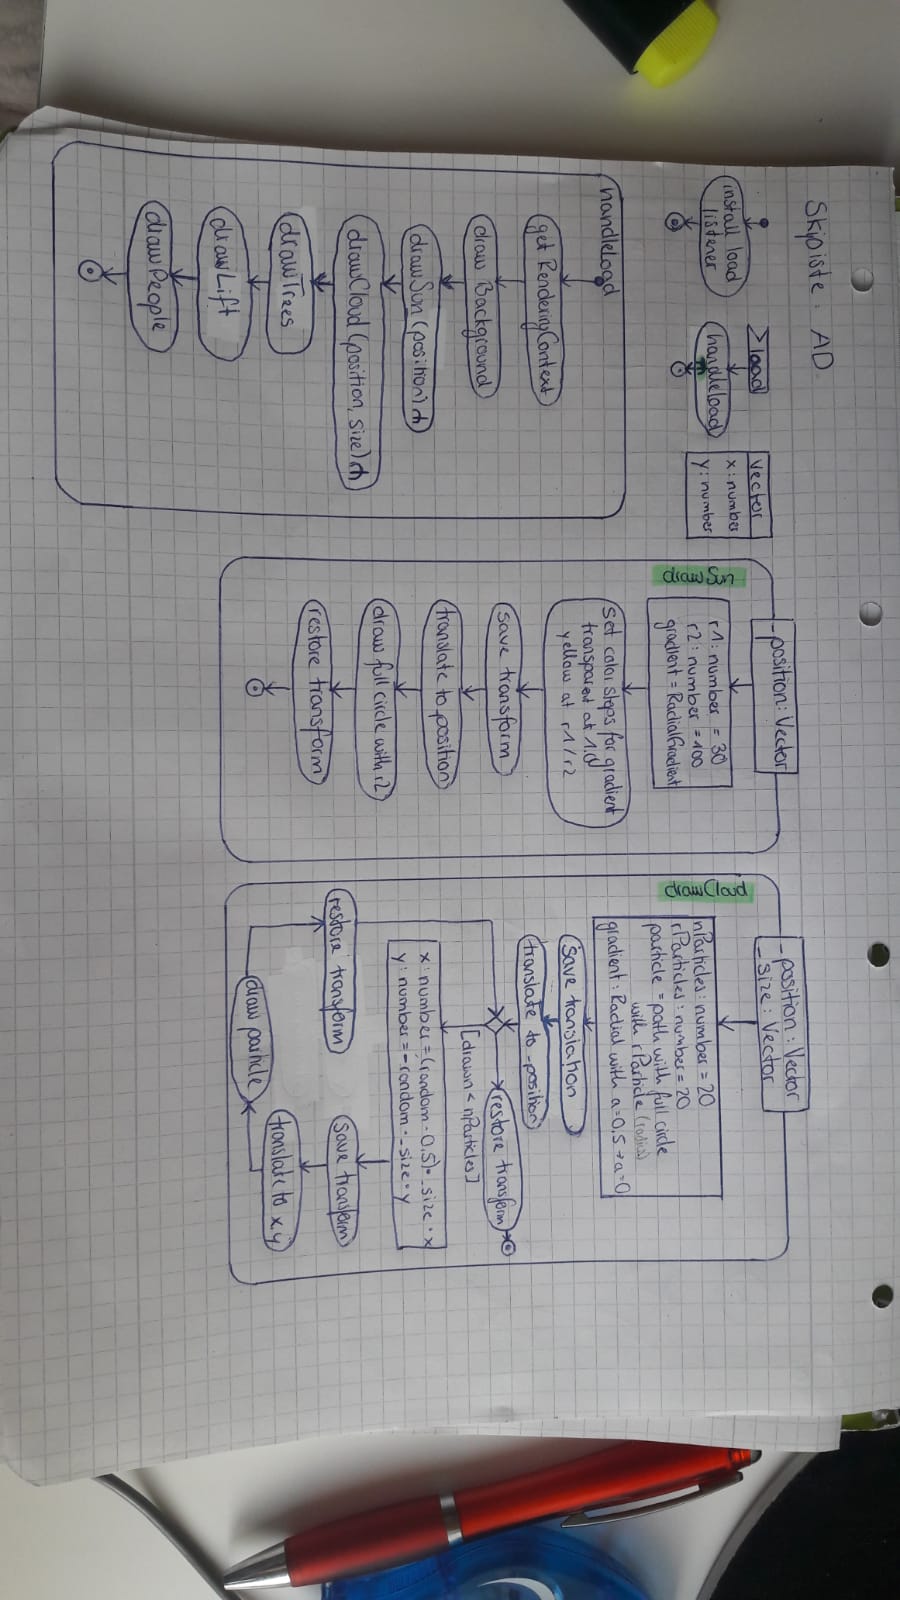 Skipiste: AD
install load
listener
load
handleload
Vector
x: number
y: number
handleload
get RenderingContext
draw Background
drawSun (position)
drawCloud (position, size)
drawTrees
drawLift
drawPeople
_position: Vector
drawSun
r1: number = 30
r2: number = 100
gradient = RadialGradient
Set color steps for gradient
yellow at r1/r2
save transform
translate to position
draw full circle with r2
restore transform
_position: Vector
_Size: Vector
drawCloud
nParticles: number = 20
rParticles: number = 20
particle = path with full circle
with rParticle (radius)
gradient: Radial with a=0,5 → a=0
save translation
translate to _position
restore transform
[drawn < nParticles]
x: number = (random - 0,5) · _size · x
y: number = -random · _size · y
save transform
translate to x,y
draw particle
restore transform